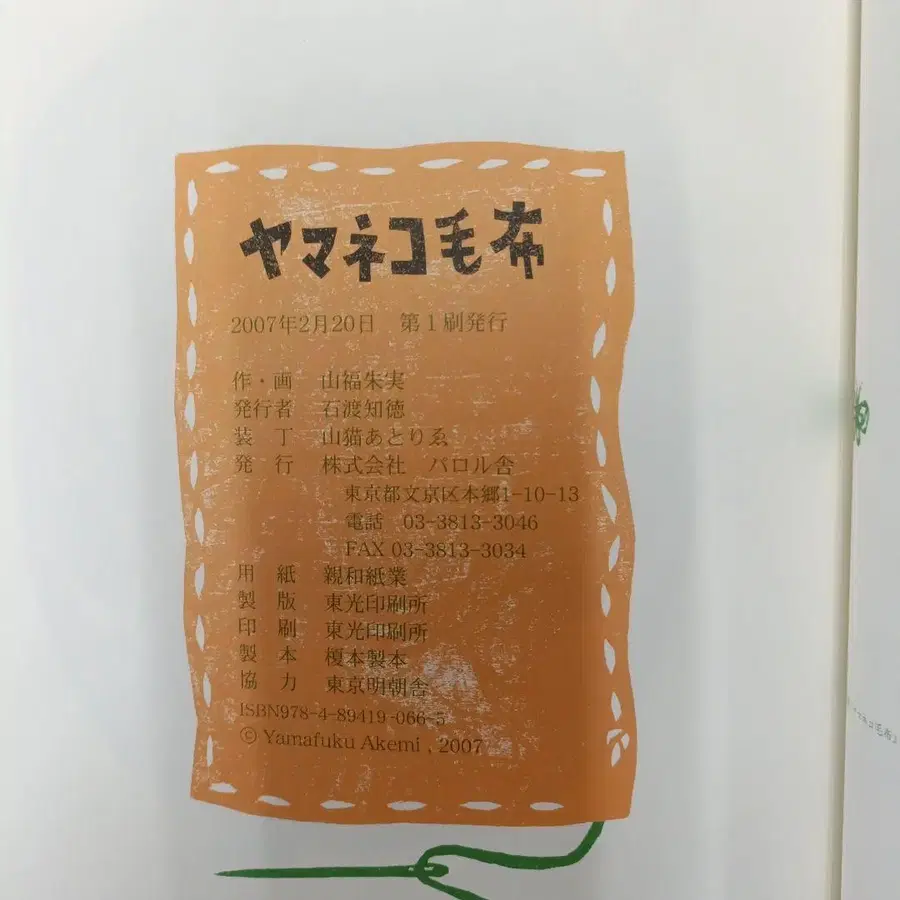 ヤマネコ毛布
2007年2月20日　第1刷発行
作・画　山福朱実
発行者　石渡知徳
装　丁　山猫あとりゑ
発　行　株式会社　パロル舎
東京都文京区本郷1-10-13
電話　03-3813-3046
FAX 03-3813-3034
用　紙　親和紙業
製　版　東光印刷所
印　刷　東光印刷所
製　本　榎本製本
協　力　東京明朝舎
ISBN978-4-89419-066-5
© Yamafuku Akemi , 2007